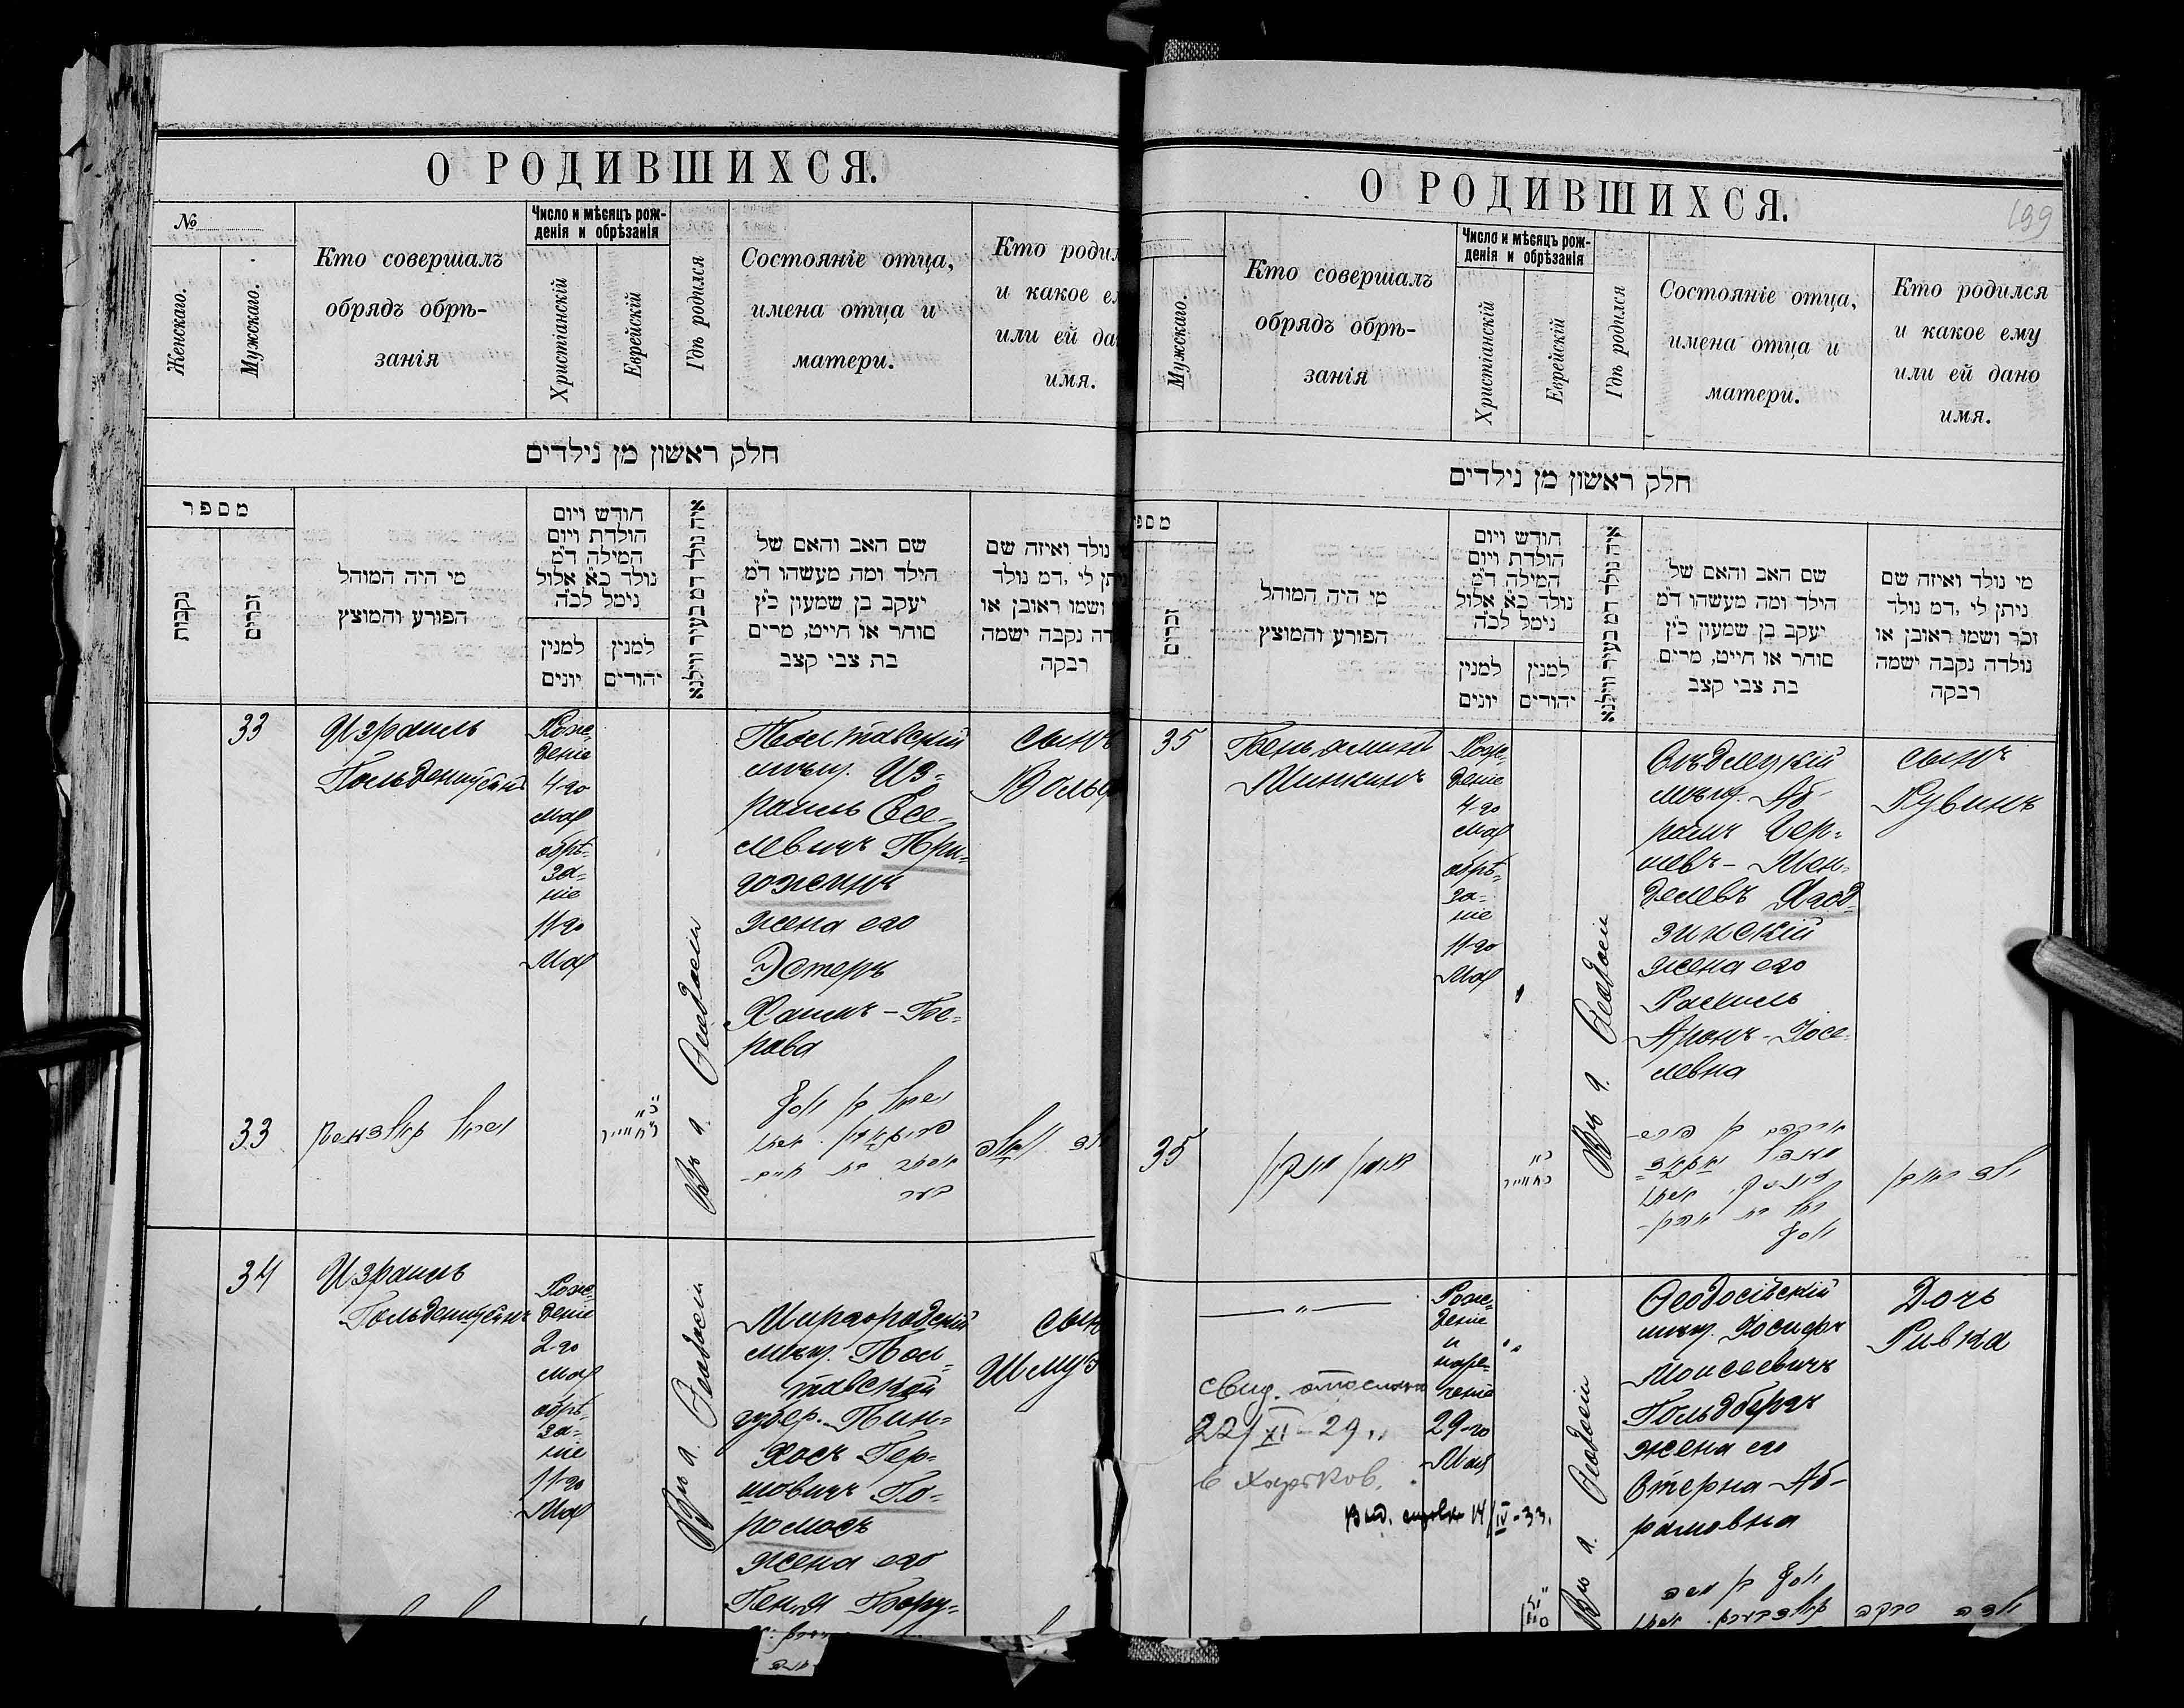 О РОДИВШИХСЯ.
№
Женскаго.
Мужскаго.
Кто совершалъ
обрядъ обрѣ-
занія
Число и мѣсяцъ рож-
денія и обрѣзанія
Христіанскій
Еврейскій
Гдѣ родился
Состояніе отца,
имена отца и
матери.
Кто родил
и какое е
или ей да
имя.
חלק ראשון מן נילדים
מספר
נקבות
זכרים
מי היה המוהל
הפורע והמוצץ
חודש ויום
הולדת ויום
המילה ד"מ
נולד כ"א אלול
נימל לכ"ה
למנין
יונים
למנין
יהודים
איה נולד דמ בעיר ווילנא
שם האב והאם של
הילד ומה מעשהו ד"מ
יעקב בן שמעון כ"ץ
סוחר או חייט, מרים
בת צבי קצב
נולד ואיזה שם
יתן לי, דמ נולד
ושמו ראובן או
דה נקבה ישמה
רבקה
33
Израиль
Гольденштейнъ
Рож-
деніе
4-го
мая
обрѣ-
за-
ніе
11-го
Мая
Въ г. Ѳеодосіи
Полтавскій
мѣщ. Из-
раиль Іосе-
левичъ При-
гожинъ
жена его
Эстеръ
Хаимъ-Бе-
рова
сынъ
Вольф
33
34
Израиль
Гольденштейнъ
Рож-
деніе
2-го
мая
обрѣ-
за-
ніе
11-го
Мая
Въ г. Ѳеодосіи
Миргородскій
мѣщ. Пол-
тавской
губер. Пин-
хосъ Гер-
шовичъ
жена его
Геня Бору-
сын
Шму
О РОДИВШИХСЯ.
199
Мужскаго.
Кто совершалъ
обрядъ обрѣ-
занія
Число и мѣсяцъ рож-
денія и обрѣзанія
Христіанскій
Еврейскій
Гдѣ родился
Состояніе отца,
имена отца и
матери.
Кто родился
и какое ему
или ей дано
имя.
חלק ראשון מן נילדים
מספ
זכרים
מי היה המוהל
הפורע והמוצץ
חודש ויום
הולדת ויום
המילה ד"מ
נולד כ"א אלול
נימל לכ"ה
למנין
יונים
למנין
יהודים
איה נולד דמ בעיר ווילנא
שם האב והאם של
הילד ומה מעשהו ד"מ
יעקב בן שמעון כ"ץ
סוחר או חייט, מרים
בת צבי קצב
מי נולד ואיזה שם
ניתן לי, דמ נולד
זכר ושמו ראובן או
נולדה נקבה ישמה
רבקה
35
Беньяминъ
Минкинъ
Рож-
деніе
4-го
мая
обрѣ-
за-
ніе
11-го
Мая
Въ г. Ѳеодосіи
мѣщ. Аб-
рамъ Гер-
шевъ-Мен-
делевъ Ягод-
зинскій
жена его
Рахиль
Аронъ-Іосе-
левна
сынъ
Рувинъ
35
свид. отослано
22/XI-29
в Харьков.
Выд. справк 14/IV-33.
Рож-
деніе
и
наре-
ченіе
29-го
Мая
Въ г. Ѳеодосіи
Ѳеодосійскій
мѣщ. Іосифъ
Моисеевичъ
Гольдбергъ
жена его
Стерна Аб-
рамовна
Дочь
Ривка